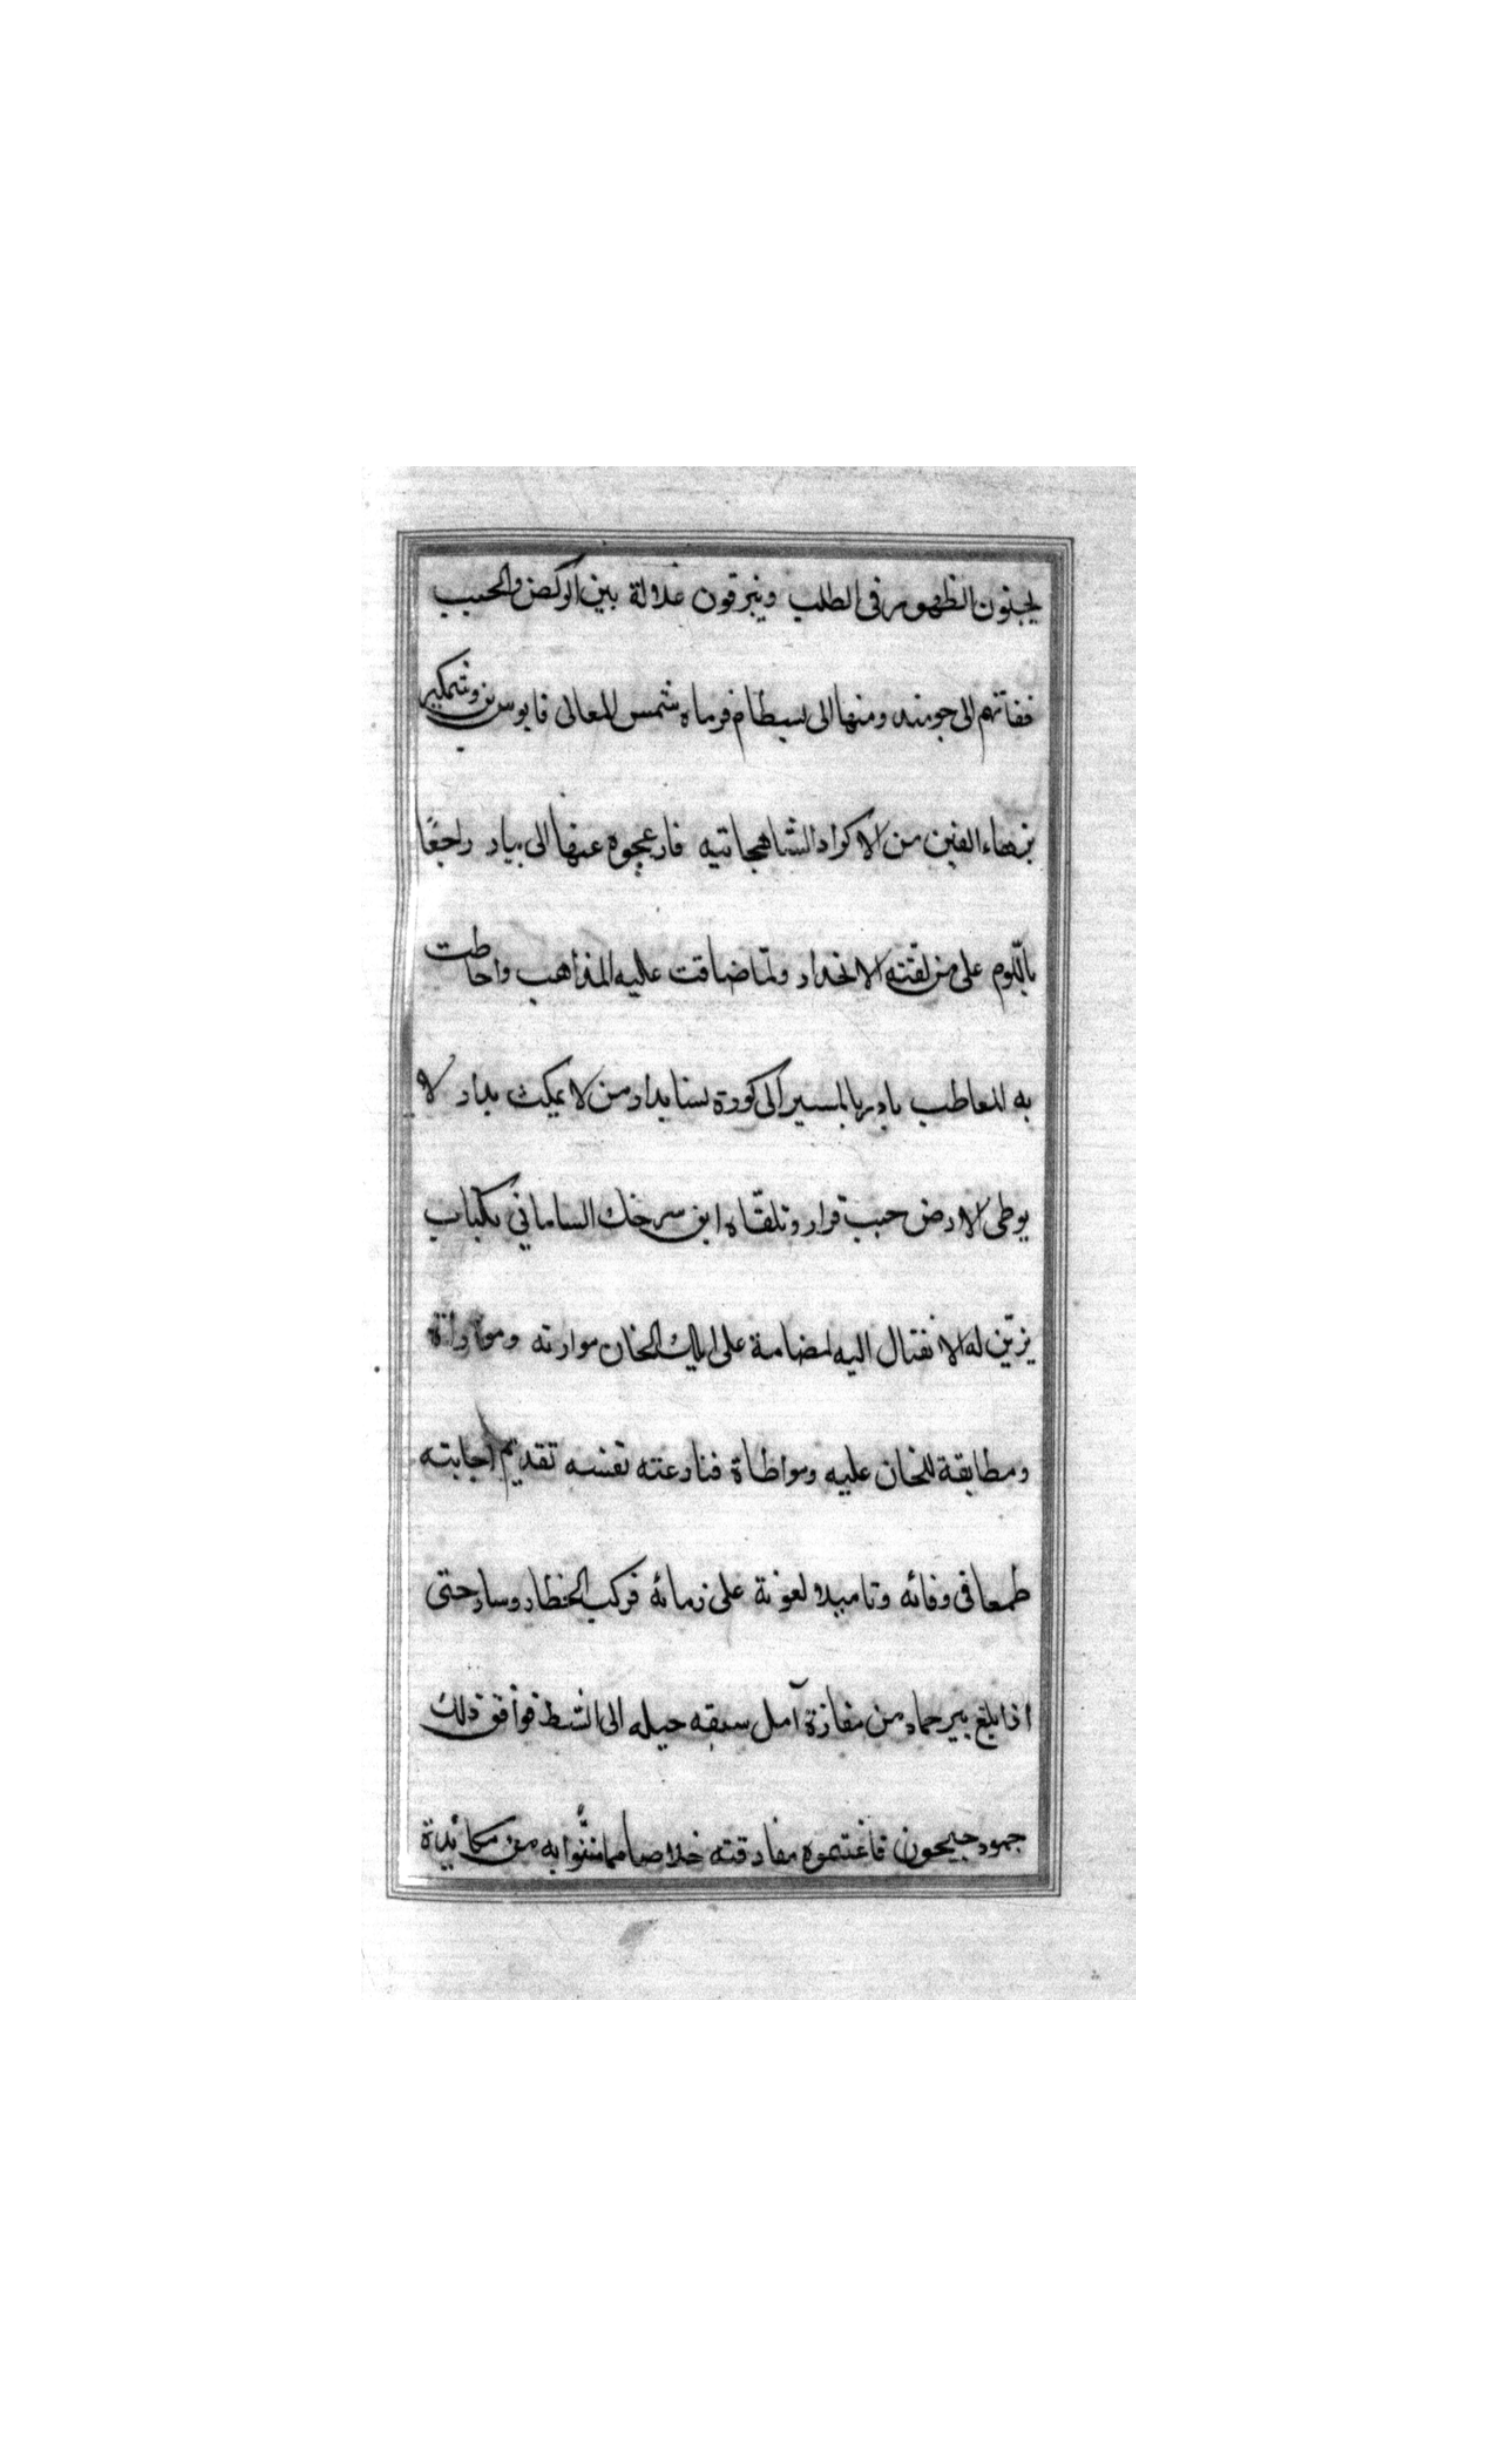 يحبنون الظهور فى الطلب وينرقون غلالة بين الركض والخبب
ففاتهم الى جومند ومنها الى بسطام فرماه شمس المعالى قابوس بن وشمكير
بزهاء الفين من الاكراد الشاهجانيه فازعجوه عنها الى بيار راجعًا
باللوم على من لقنه الانحدار ولما ضاقت عليه المذاهب واحاطت
به المعاطب بادر بالمسير الى كورة نسا بدار من لا يمكث بدار لا
يوطى الارض جنب قرار وتلقاه ابن سرخك السامانى بكتاب
يزين له الانفتال اليه لمضامة على ايلك الخان موارته وموازاة
ومطابقة للخان عليه ومواطاة فنازعته نفسه تقديم اجابته
طمعا فى وفائه وتاميلا لعونة على زمانه فركب الخطار وسار حتى
اذا بلغ بير حماد من مفازة آمل سبقه خيله الى الشط فوافق ذلك
جمود جيحون فاغتموه مفارقته خلاصا مما منوا به من مكائدة